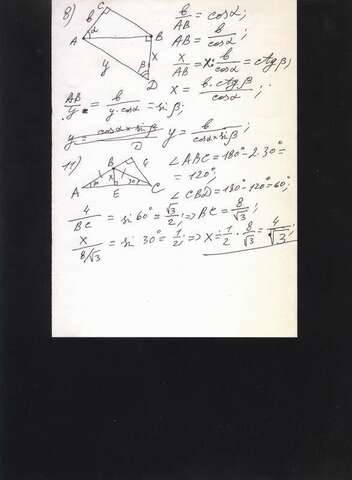 8) C b α A B x β D y b/AB = cosα;
AB = b/cosα;
x/AB = x : b/cosα = ctgβ;
x = b·ctgβ/cosα;
AB/y = b/y·cosα = sin β;
y = b/cosα×sinβ;
11) B 4 x 30° 30° A E C ∠ABC = 180° - 2·30° =
= 120°;
∠CBD = 180° - 120° = 60°;
4/BC = sin 60° = √3/2; => BC = 8/√3;
x/8/√3 = sin 30° = 1/2; => x = 1/2 · 8/√3 = 4/√3;